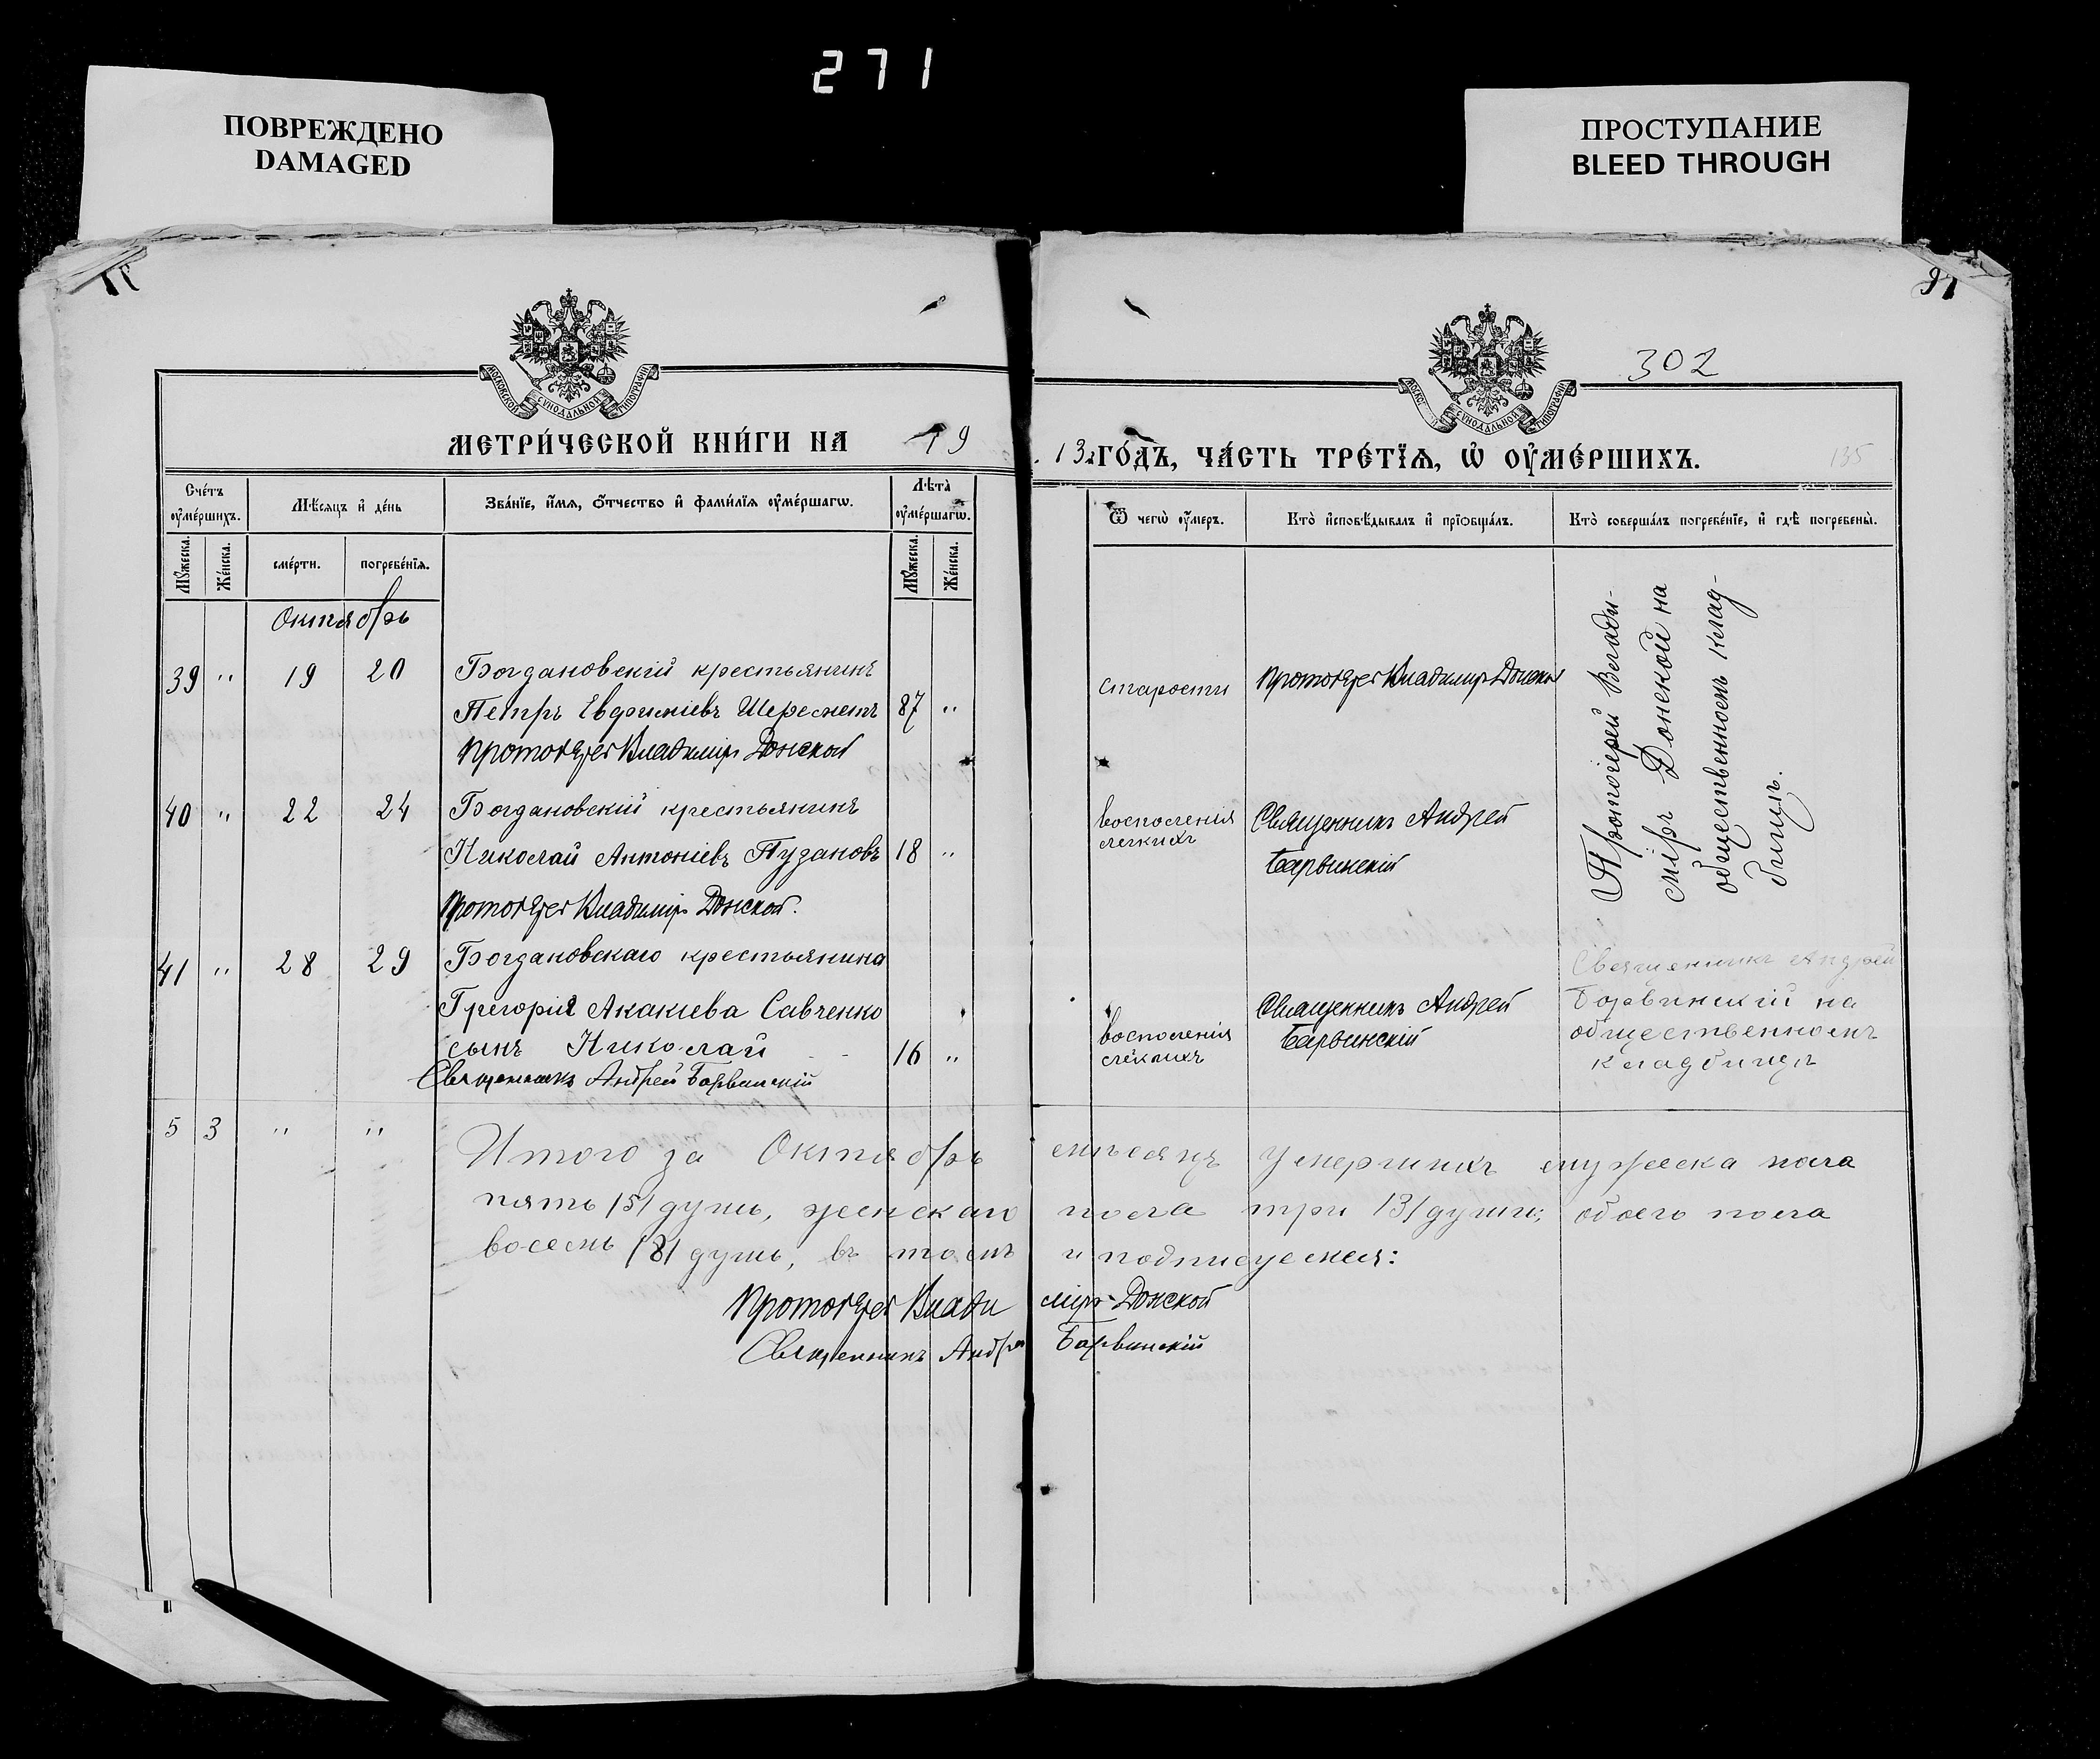 271
ПОВРЕЖДЕНО
DAMAGED
ПРОСТУПАНИЕ
BLEED THROUGH
91
302
135
МОСКОВСКОЙ СУНОДАЛЬНОЙ ТИПОГРАФІИ
МОСКОВСКОЙ СУНОДАЛЬНОЙ ТИПОГРАФІИ
МЕТРИ́ЧЕСКОЙ КНИ́ГИ НА 19
13 ГО́ДЪ, ЧА́СТЬ ТРЕ́ТЇѦ, Ѡ҆ ОУ҆МЕ́РШИХЪ.
Сче́тъ оу҆ме́ршихъ.
Мѣ́сяцъ и҆ де́нь
Зва́нїе, и҆́мя, ѻ҆́тчество и҆ фами́лїя оу҆ме́ршагѡ.
Лѣ́та̀ оу҆ме́ршагѡ.
Ѿ чегѡ̀ оу҆́меръ.
Кто̀ и҆сповѣ́дывалъ и҆ прїѻбща́лъ.
Кто̀ соверша́лъ погребе́нїе, и҆ гдѣ̀ погребены̀.
Му́жеска.
Же́нска.
сме́рти.
погребе́нїя.
Му́жеска.
Же́нска.
Октябрь
39 " 19 20 Богдановскій крестьянинъ
Петръ Евфиміевъ Шереметъ 87 "
старости
Протоіерей Владиміръ Донской
Протоіерей Владиміръ Донской
Протоіерей Влади-
міръ Донской на
общественномъ клад-
бищѣ.
40 " 22 24 Богдановскій крестьянинъ
Николай Антоніевъ Пузановъ 18 "
Протоіерей Владиміръ Донской.
воспаленія
легкихъ
Священникъ Андрей
Барвинскій
41 " 28 29 Богдановскаго крестьянина
Григорія Акакіева Савченко
сынъ Николай 16 "
Священникъ Андрей Барвинскій
воспаленія
легкихъ
Священникъ Андрей
Барвинскій
Священникъ Андрей
Барвинскій на
общественномъ
кладбищѣ
5 3 " " Итого за Октябрь мѣсяцъ умершихъ мужеска пола
пять /5/ душъ, женскаго пола три /3/ души; обоего пола
восемь /8/ душъ, въ томъ и подписуемся:
Протоіерей Владиміръ Донской
Священникъ Андрей Барвинскій